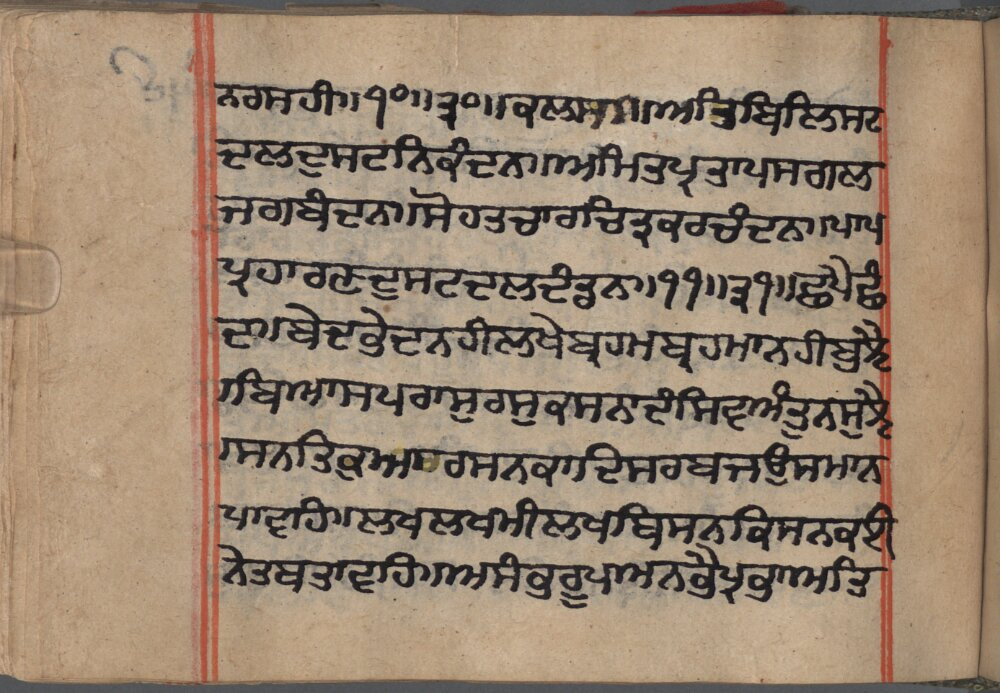 ਨਰਸਹੀ॥੧੦॥੩੦॥ਕਲਸ॥ਅਤਿਬਿਲਿਸਟ
ਦਲਦੁਸਟਨਿਕੰਦਨ॥ਅਮਿਤਪ੍ਰਤਾਪਸਗਲ
ਜਗਬੰਦਨ॥ਸੋਹਤਚਾਰਚਿਤ੍ਰਕਰਚੰਦਨ॥ਪਾਪ
ਪ੍ਰਹਾਰਣਦੁਸਟਦਲਦੰਡਨ॥੧੧॥੩੧॥ਛਪੈਛੰ
ਦ॥ਬੇਦਭੇਦਨਹੀਲਖੇਬ੍ਰਹਮਬ੍ਰਹਮਾਨਹੀਬੁਝੈ
॥ਬਿਆਸਪਰਾਸੁਰਸੁਕਸਨਾਦਿਸਿਵਅੰਤੁਨਸੁਝੈ
॥ਸਨਤਿਕੁਆਰਸਨਕਾਦਿਸਰਬਜਉਸਮਾਨ
ਪਾਵਹਿ॥ਲਖਲਖਮੀਲਖਬਿਸਨਕਿਸਨਕਈ
ਨੇਤਬਤਾਵਹਿ॥ਅਸੰਭੁਰੂਪਅਨਭੈਪ੍ਰਭੁਅਤਿ